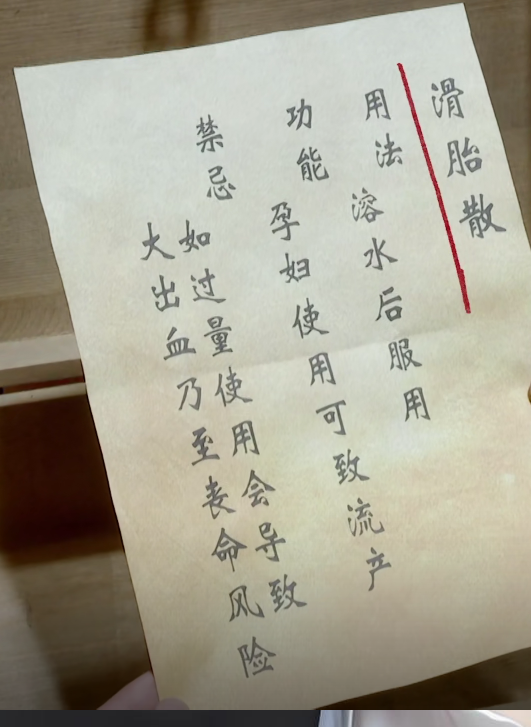 滑胎散
用法 溶水后服用
功能 孕妇使用可致流产
禁忌 如过量使用会导致
大出血乃至丧命风险